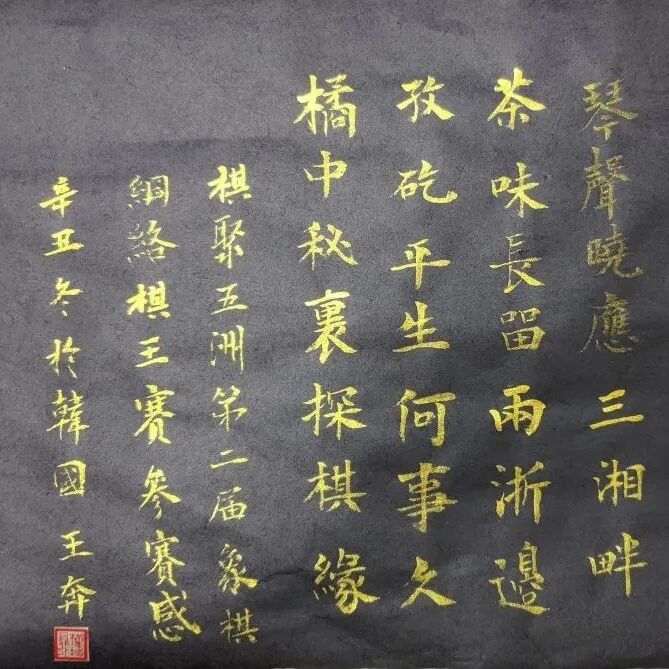 琴聲曉應三湘畔
茶味長留兩浙邊
孜矻平生何事久
橘中秘裏探棋緣
棋聚五洲第二届象棋
網絡棋王賽參賽感
辛丑冬於韓國 王奔